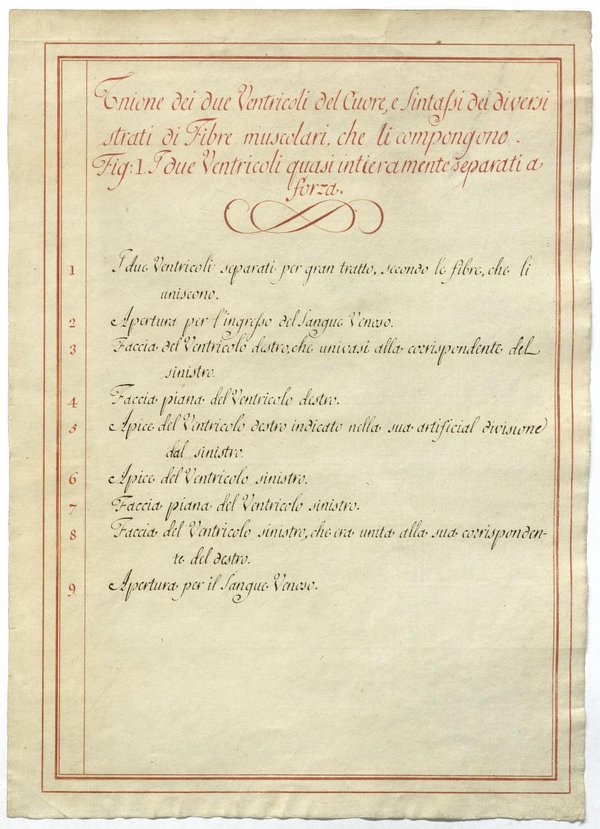 Unione dei due Ventricoli del Cuore, e Sintassi dei diversi
strati di Fibre muscolari, che li compongono.
Fig: 1. I due Ventricoli quasi intieramente separati a
forza.
1 I due Ventricoli separati per gran tratto, secondo le fibre, che li
uniscono.
2 Apertura per l'ingresso del Sangue Venoso.
3 Faccia del Ventricolo destro, che univasi alla corrispondente del
sinistro.
4 Faccia piana del Ventricolo destro.
5 Apice del Ventricolo destro indicato nella sua artificial divisione
dal sinistro.
6 Apice del Ventricolo sinistro.
7 Faccia piana del Ventricolo sinistro.
8 Faccia del Ventricolo sinistro, che era unita alla sua corrisponden-
te del destro.
9 Apertura per il Sangue Venoso.